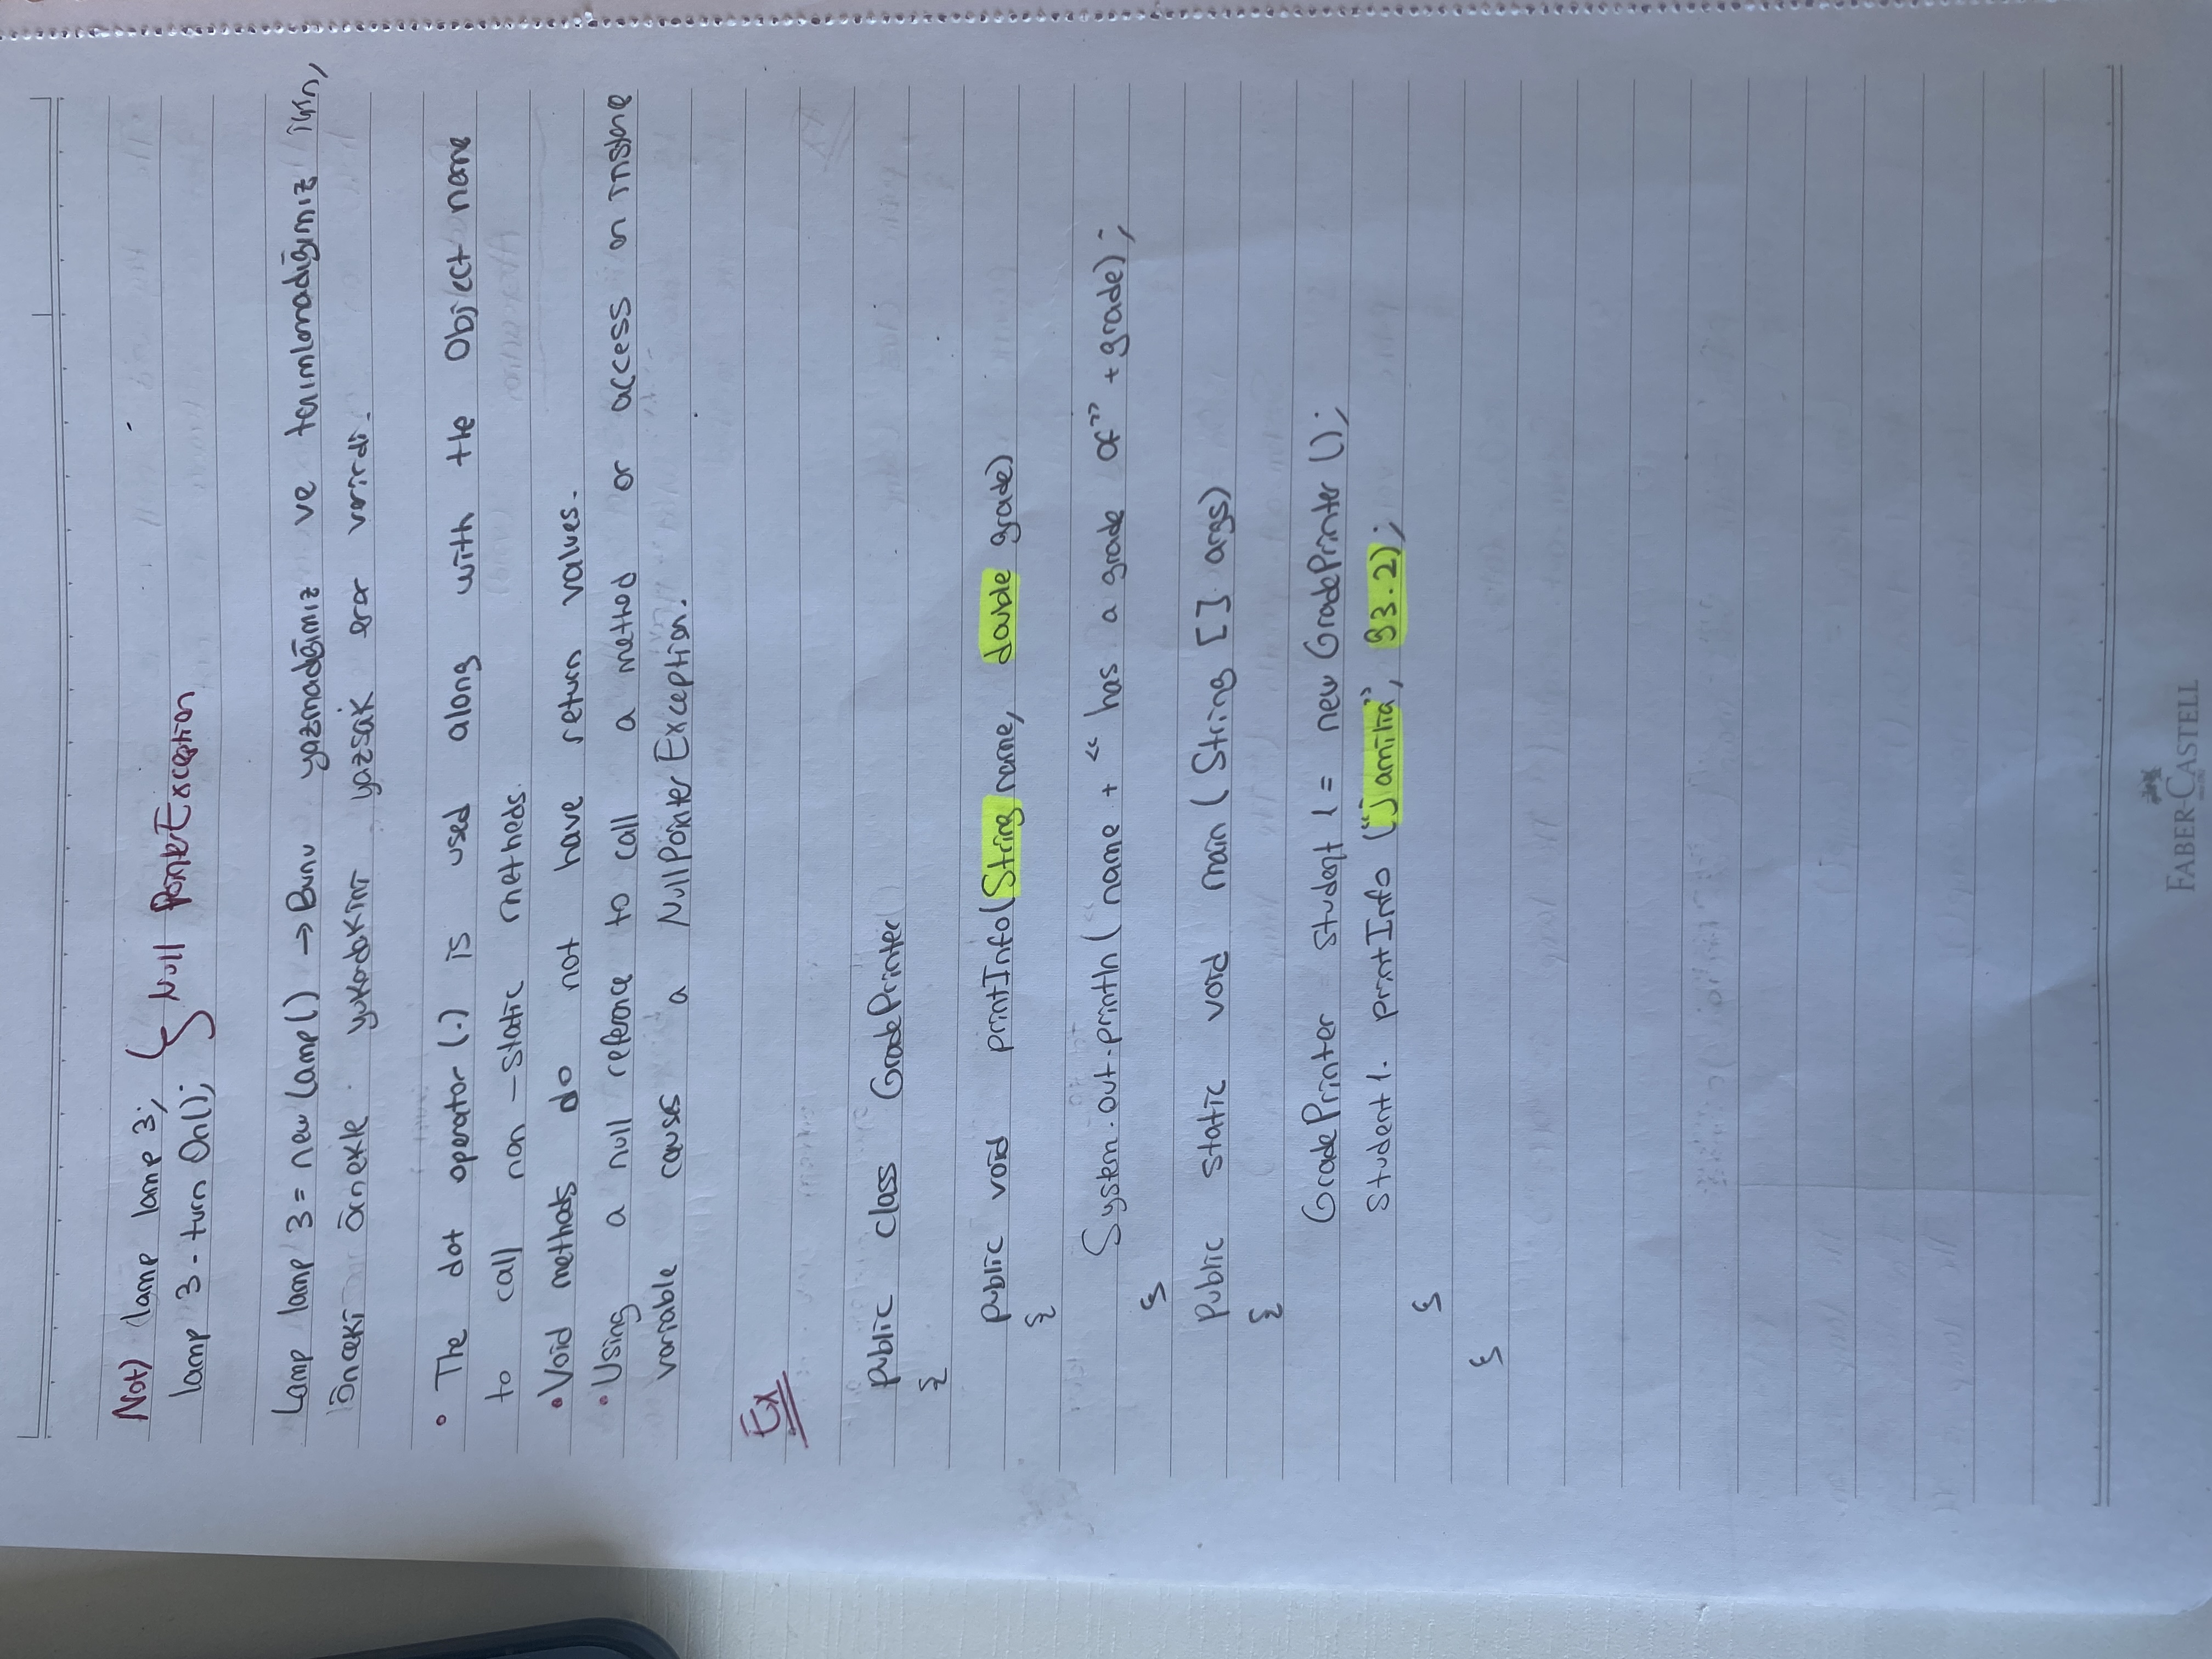 Not) lamp lamp 3; } Null PointerException
lamp 3. turn On();
Lamp lamp 3 = new Lamp() → Bunu yazmadığımız ve tanımlamadığımız için,
önceki örnekle yukadakini yazsak eror verirdi.
• The dot operator (.) is used along with the Object name
to call non-static methods.
• Void methods do not have return values.
• Using a null reference to call a method or access an instance
variable causes a NullPointerException.
Ex
public class GradePrinter
{
public void printInfo(String name, double grade)
{
System.out.println( name + “ has a grade of” + grade);
}
Public static void main ( String [] args)
{
GradePrinter student 1 = new GradePrinter ();
Student 1. printInfo (“Jamilia”, 93.2);
}
}
FABER-CASTELL